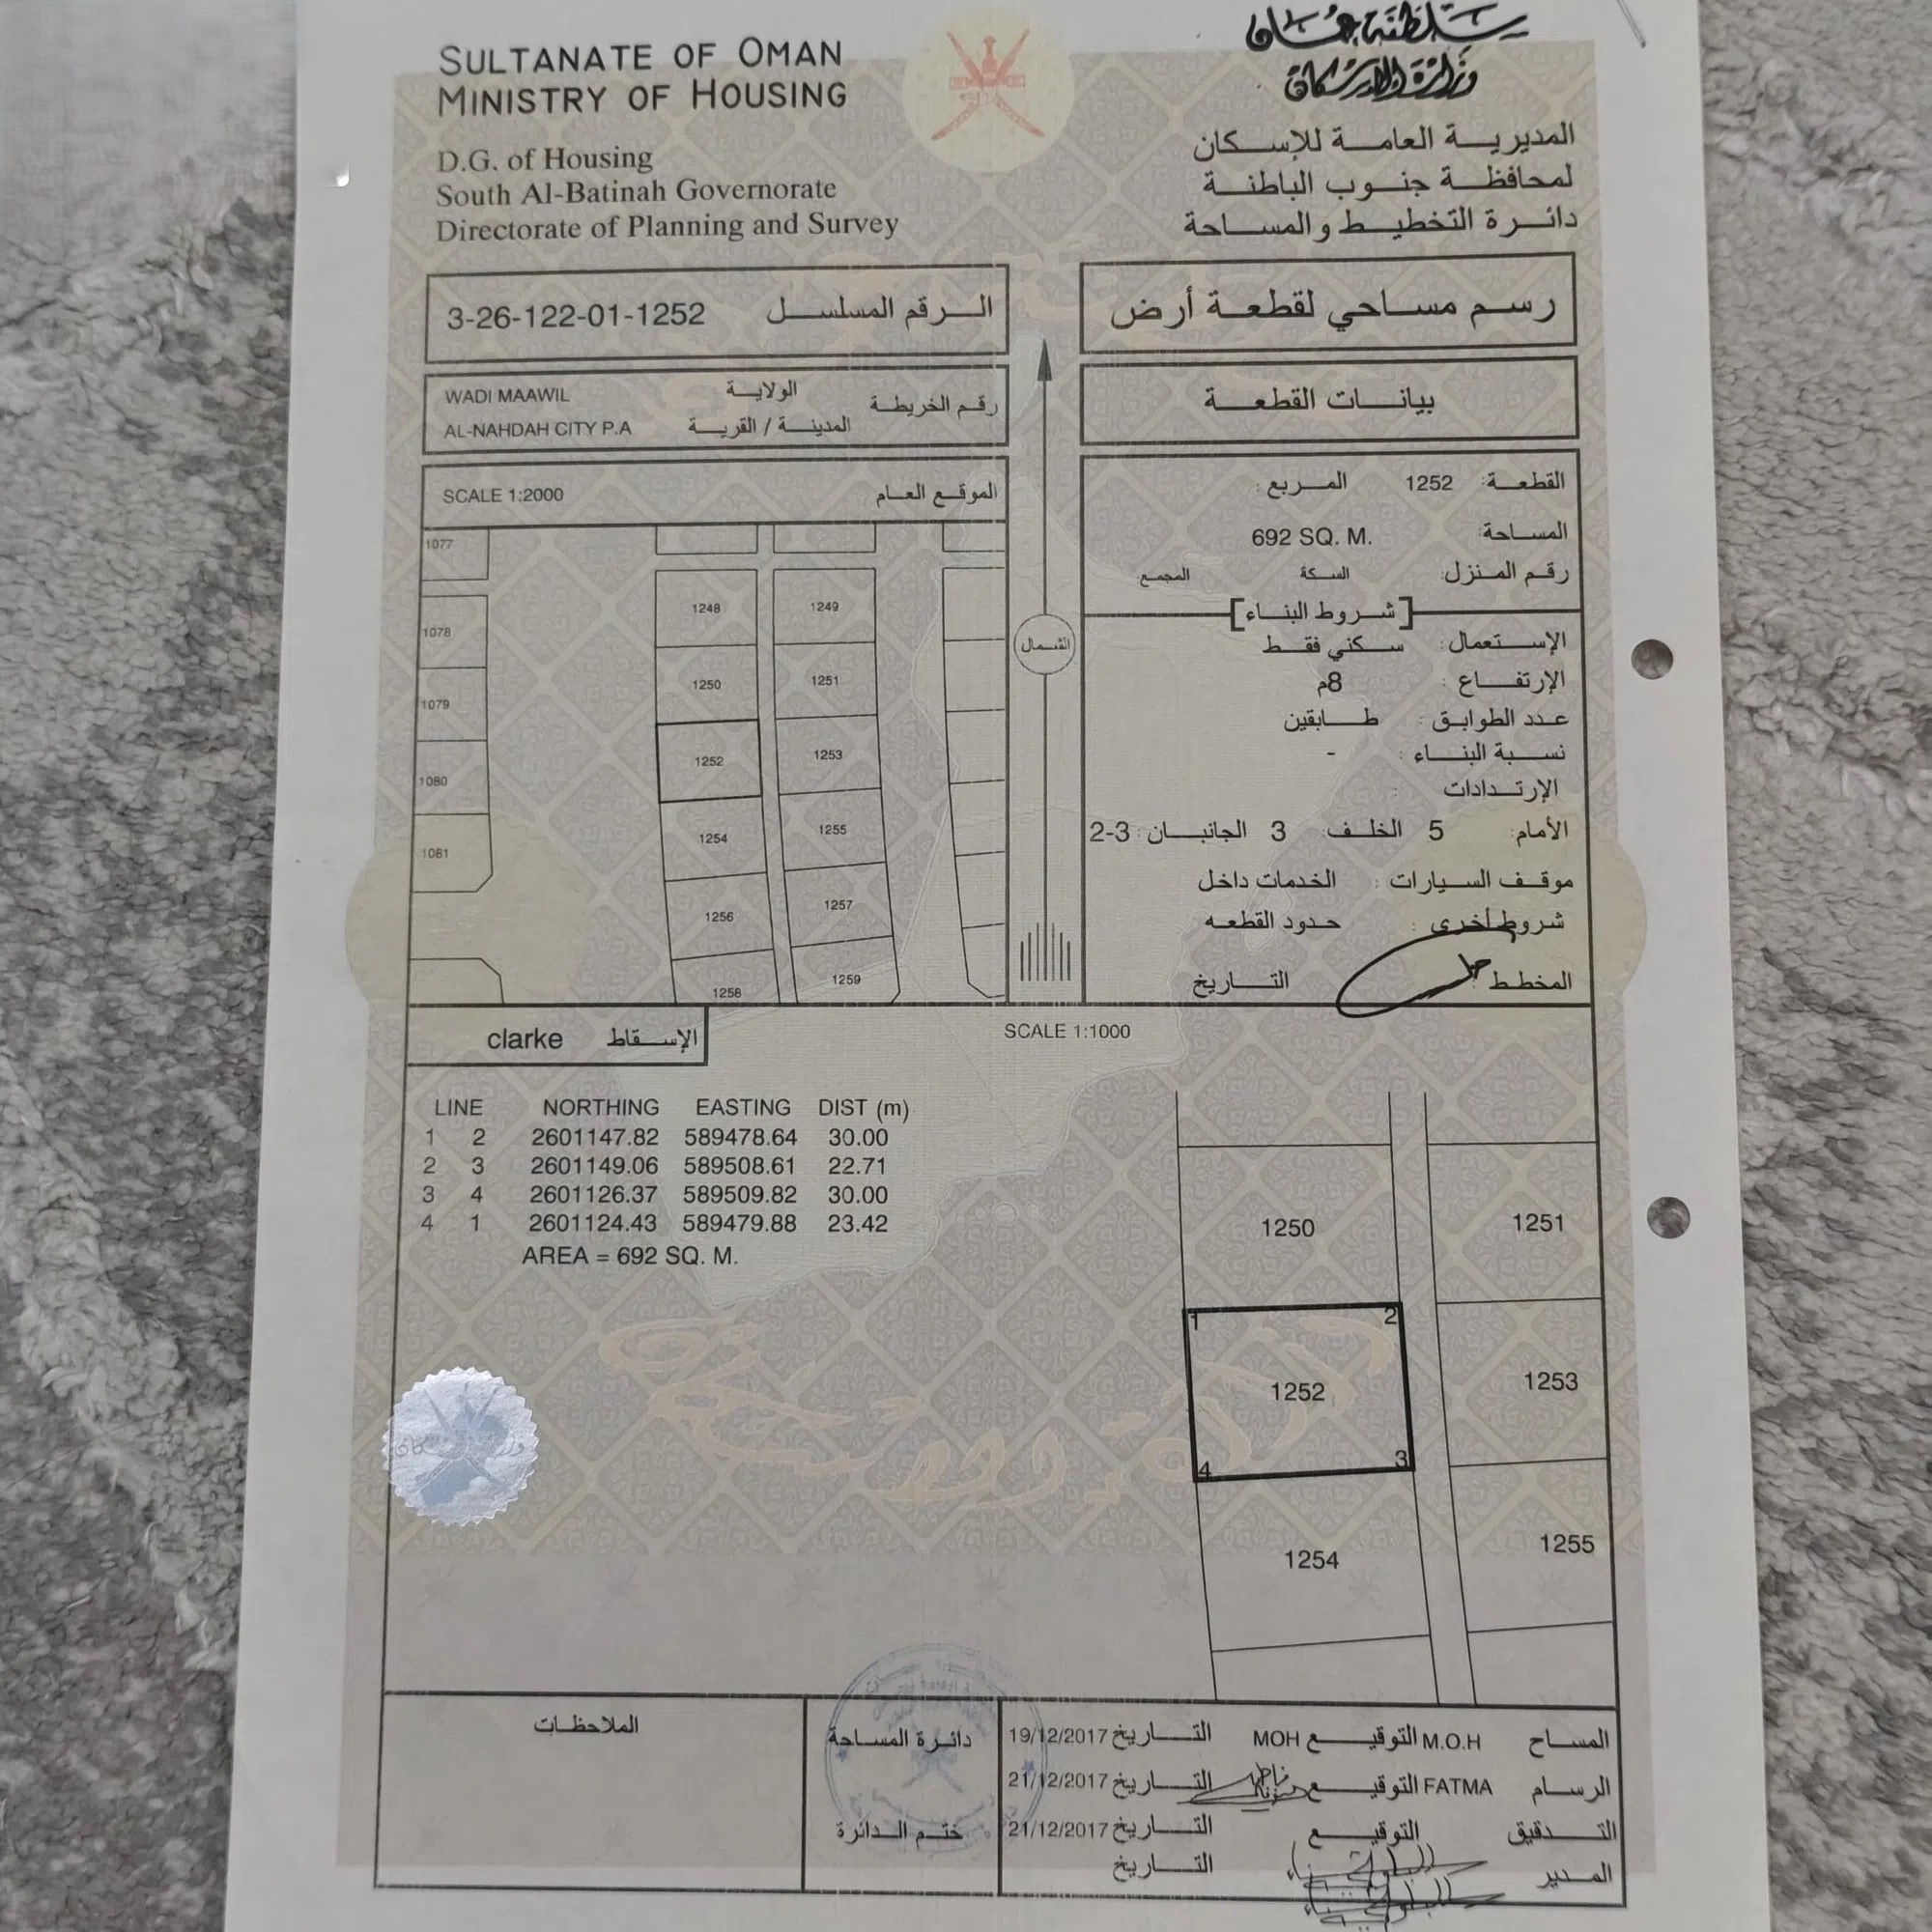 SULTANATE OF OMAN
MINISTRY OF HOUSING
D.G. of Housing
South Al-Batinah Governorate
Directorate of Planning and Survey
سلطنة عمان
وزارة الإسكان
المديرية العامة للإسكان
لمحافظة جنوب الباطنة
دائرة التخطيط والمساحة
رسم مساحي لقطعة أرض
الرقم المسلسل 3-26-122-01-1252
بيانات القطعة
رقم الخريطة
الولاية WADI MAAWIL
المدينة / القرية AL-NAHDAH CITY P.A
القطعة: 1252 المربع:
المساحة: 692 SQ. M.
رقم المنزل: السكة المجمع
[شروط البناء]
الإستعمال: سكني فقط
الإرتفاع: 8م
عدد الطوابق: طابقين
نسبة البناء: -
الإرتدادات:
الأمام: 5 الخلف: 3 الجانبان: 2-3
موقف السيارات: الخدمات داخل
شروط أخرى: حدود القطعه
المخطط: التاريخ
SCALE 1:2000 الموقع العام
1077
1248 1249
1078
1250 1251
1079
1252 1253
1080
1254 1255
1081
1256 1257
1258 1259
الشمال
clarke الإسقاط
SCALE 1:1000
LINE NORTHING EASTING DIST (m)
1 2 2601147.82 589478.64 30.00
2 3 2601149.06 589508.61 22.71
3 4 2601126.37 589509.82 30.00
4 1 2601124.43 589479.88 23.42
AREA = 692 SQ. M.
1250 1251
1 2
1252 1253
4 3
1254 1255
المساح M.O.H التوقيع MOH التاريخ 19/12/2017
الرسام FATMA التوقيع التاريخ 21/12/2017
التدقيق التوقيع التاريخ 21/12/2017
المدير التاريخ
دائرة المساحة
ختم الدائرة
الملاحظات